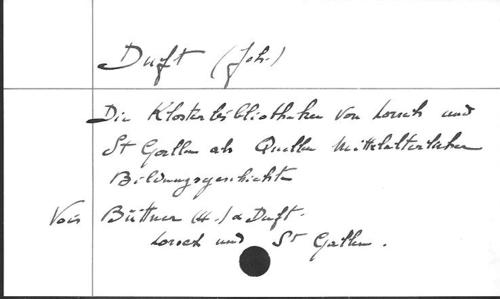 Duft (Joh.)
Die Klosterbibliotheken von Lorsch und
St Gallen als Quellen Mittelalterlicher
Bildungsgeschichte
Voir Büttner (H.) & Duft.
Lorsch und St Gallen.